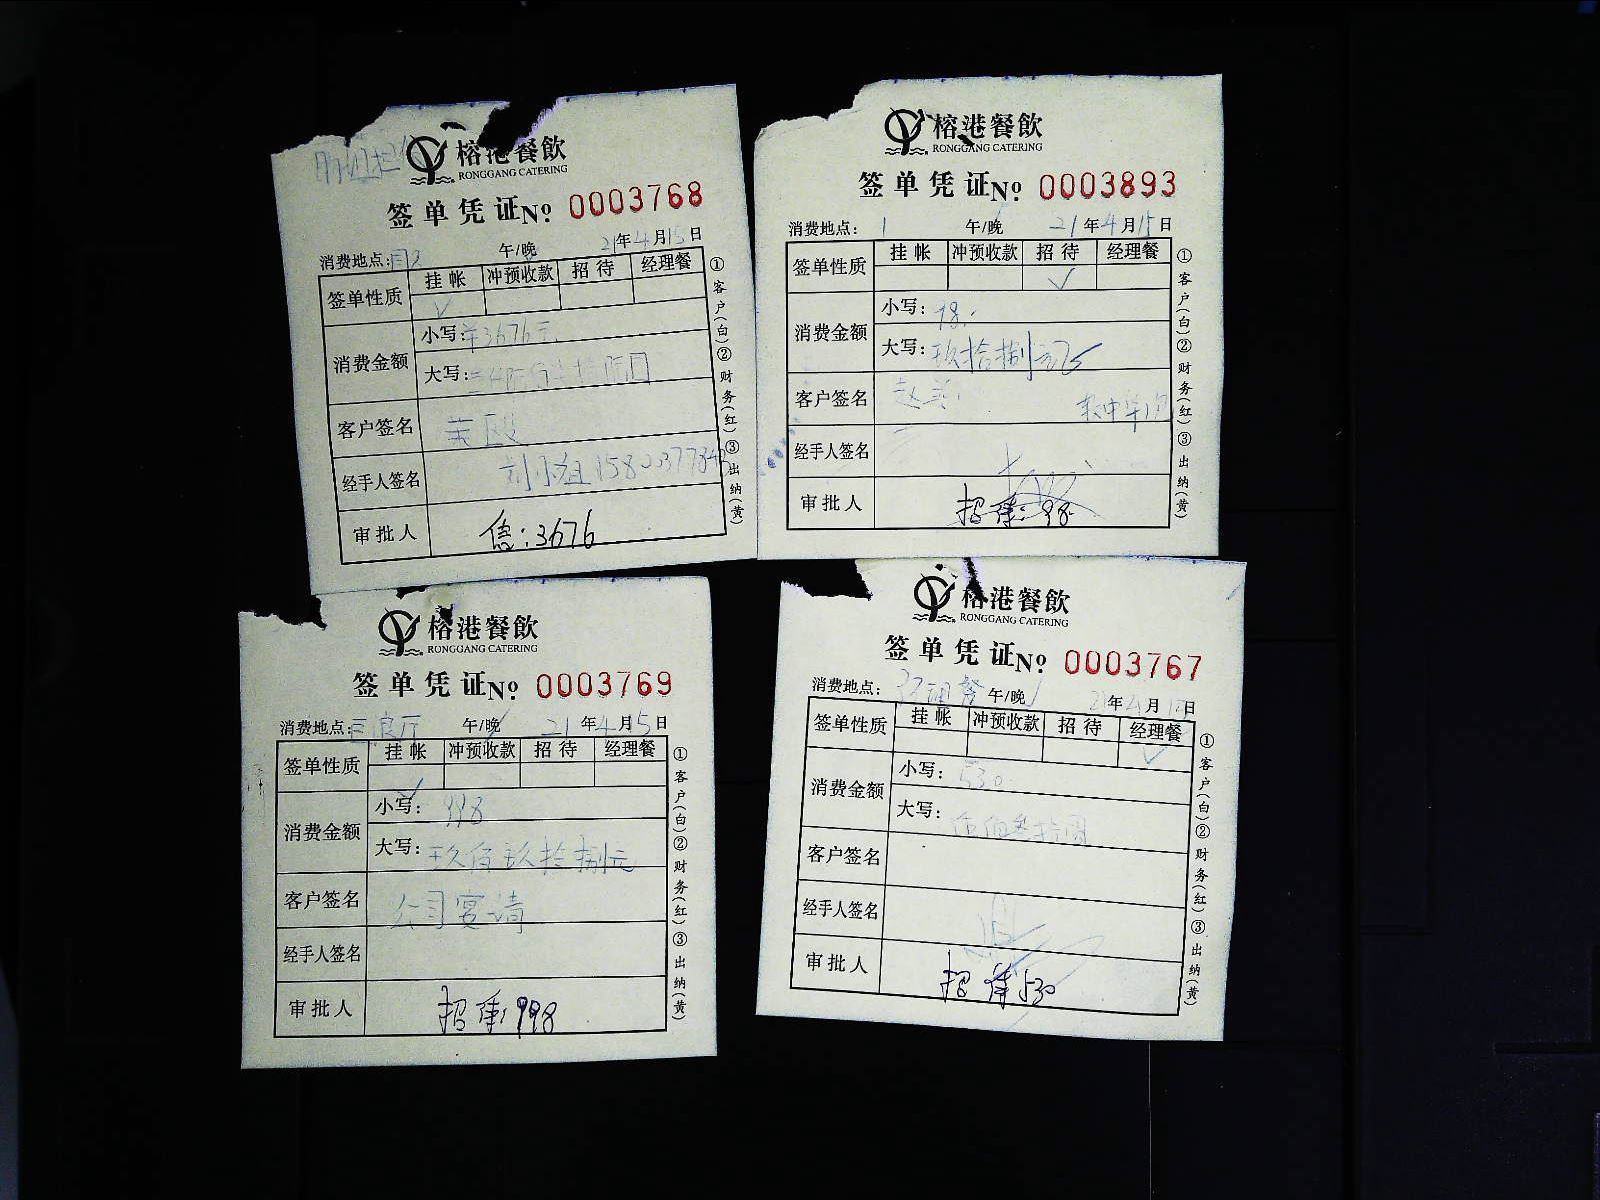 榕港餐飲
RONGGANG CATERING
签单凭证№ 0003768
消费地点: 午/晚 21年4月15日
签单性质 挂帐 冲预收款 招待 经理餐
✓
消费金额 小写:¥3676元
大写:
客户签名
经手人签名 刘小姐
审批人 信:3676
①客户(白)②财务(红)③出纳(黄)
榕港餐飲
RONGGANG CATERING
签单凭证№ 0003893
消费地点: 1 午/晚 21年4月15日
签单性质 挂帐 冲预收款 招待 经理餐
✓
消费金额 小写:98.-
大写:玖拾捌元
客户签名
经手人签名
审批人 招待:98.
①客户(白)②财务(红)③出纳(黄)
榕港餐飲
RONGGANG CATERING
签单凭证№ 0003769
消费地点: 午/晚 21年4月5日
签单性质 挂帐 冲预收款 招待 经理餐
✓
消费金额 小写:998
大写:玖佰玖拾捌元
客户签名 公司宴请
经手人签名
审批人 招待:998
①客户(白)②财务(红)③出纳(黄)
榕港餐飲
RONGGANG CATERING
签单凭证№ 0003767
消费地点: 经理餐 午/晚 21年4月15日
签单性质 挂帐 冲预收款 招待 经理餐
✓
消费金额 小写:530.
大写:伍佰叁拾圆
客户签名
经手人签名
审批人 招待530
①客户(白)②财务(红)③出纳(黄)